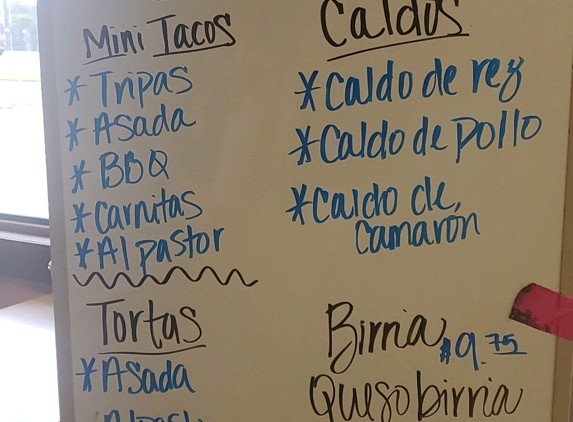 Mini Tacos
* Tripas
* Asada
* BBQ
* Carnitas
* Al pastor
Tortas
* Asada
Caldos
* Caldo de rez
* Caldo de pollo
* Caldo de
Camaron
Birria $9.75
Quesobirria